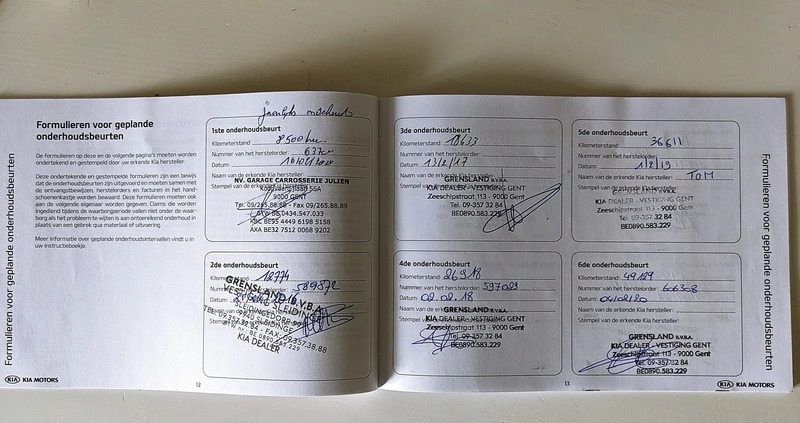 Formulieren voor geplande onderhoudsbeurten
Formulieren voor geplande
onderhoudsbeurten
De formulieren op deze en de volgende pagina's moeten worden
ondertekend en gestempeld door uw erkende Kia hersteller.
Deze ondertekende en gestempelde formulieren zijn een bewijs
dat de onderhoudsbeurten zijn uitgevoerd en moeten samen met
de ontvangstbewijzen, herstelorders en facturen in het hand-
schoenenkastje worden bewaard. Deze formulieren moeten ook
aan de volgende eigenaar worden gegeven. Claims die worden
ingediend tijdens de waarborgperiode vallen niet onder de waar-
borg als het probleem te wijten is aan ontbrekend onderhoud in
plaats van een gebrek qua materiaal of uitvoering.
Meer informatie over geplande onderhoudsintervallen vindt u in
uw instructieboekje.
KIA KIA MOTORS
1ste onderhoudsbeurt
Kilometerstand: 8500 km
Nummer van het herstelorder:
Datum:
Naam van de erkende Kia hersteller:
Stempel van de
NV. GARAGE CARROSSERIE JULIEN
9000 GENT
Tel: 09/265.88.88 - Fax 09/265.88.89
BTW BE 0434.547.033
BE95 4449 6198 5158
AXA BE32 7512 0068 9202
2de onderhoudsbeurt
Kilometerstand: 18774
Nummer van het herstelorder: 589872
Datum:
Naam van
Stempel van
GRENSLAND B.V.B.A.
VESTIGING SLEIDINGE
KIA DEALER
12
3de onderhoudsbeurt
Kilometerstand: 18633
Nummer van het herstelorder:
Datum: 13/2/17
Naam van de erkende Kia hersteller:
Stempel van de
GRENSLAND B.V.B.A.
KIA DEALER - VESTIGING GENT
Zeeschipstraat 113 - 9000 Gent
Tel. 09-357 32 84
BE0890.583.229
4de onderhoudsbeurt
Kilometerstand: 26918
Nummer van het herstelorder: 597029
Datum: 02.02.18
Naam van de erkende Kia hersteller:
Stempel van de
GRENSLAND B.V.B.A.
KIA DEALER - VESTIGING GENT
Zeeschipstraat 113 - 9000 Gent
Tel. 09-357 32 84
BE0890.583.229
5de onderhoudsbeurt
Kilometerstand: 36611
Nummer van het herstelorder:
Datum: 1/2/19
Naam van de erkende Kia hersteller: TOM
Stempel van de erkende Kia hersteller:
GRENSLAND B.V.B.A.
KIA DEALER - VESTIGING GENT
Zeeschipstraat 113 - 9000 Gent
Tel. 09-357 32 84
BE0890.583.229
6de onderhoudsbeurt
Kilometerstand: 49129
Nummer van het herstelorder: 606308
Datum: 04/02/20
Naam van de erkende Kia hersteller:
Stempel van de erkende Kia hersteller:
GRENSLAND B.V.B.A.
KIA DEALER - VESTIGING GENT
Zeeschipstraat 113 - 9000 Gent
Tel. 09-357 32 84
BE0890.583.229
13
KIA KIA MOTORS
Formulieren voor geplande onderhoudsbeurten